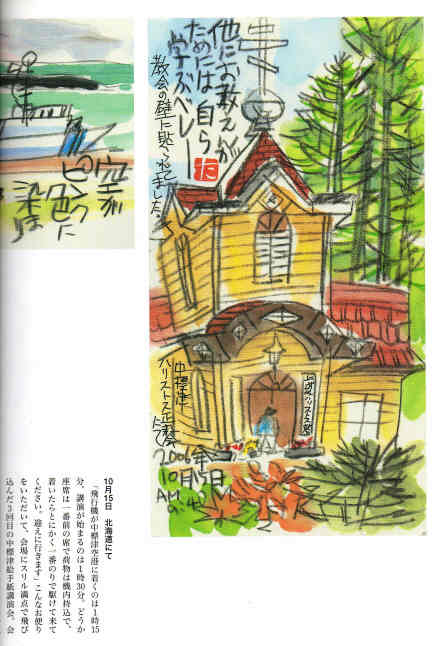 ためには自ら
教会の壁に貼られてました。
中標津
ハリストス正教会
にて
2006年
10月15日
AM
空が
ピンク
色に
10月15日　北海道にて
「飛行機が中標津空港に着くのは1時15
分、講演が始まるのは1時30分。どうか
座席は一番前の席で荷物は機内持込で、
着いたらとにかく一番のりで駆けて来て
ください。迎えに行きます」こんなお便り
をいただいて、会場にスリル満点で飛び
込んだ3回目の中標津絵手紙講演会。会